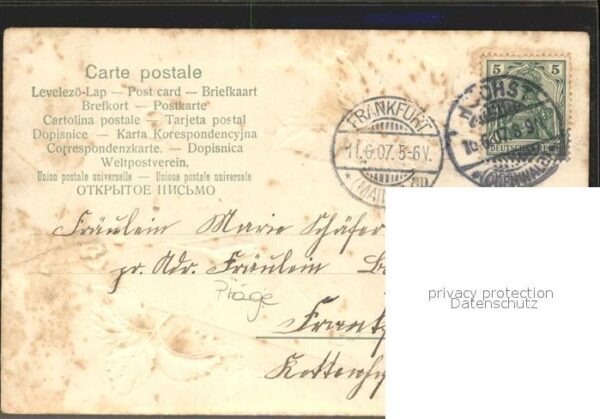 Carte postale
Levelező-Lap — Post card — Briefkaart
Brefkort — Postkarte
Cartolina postale — Tarjeta postal
Dopisnice — Karta Korespondencyjna
Correspondenzkarte. — Dopisnica
Weltpostverein.
Union postale universelle — Unione postale universale
ОТКРЫТОЕ ПИСЬМО
5 5
DEUTSCHES REICH
HÖCHST
10.6.07. 8-9V.
(ODENWALD)
FRANKFURT
11.6.07. 5-6V.
* (MAIN)
Fräulein Marie Schäfer
pr. Adr. Fräulein
Präge
privacy protection
Datenschutz